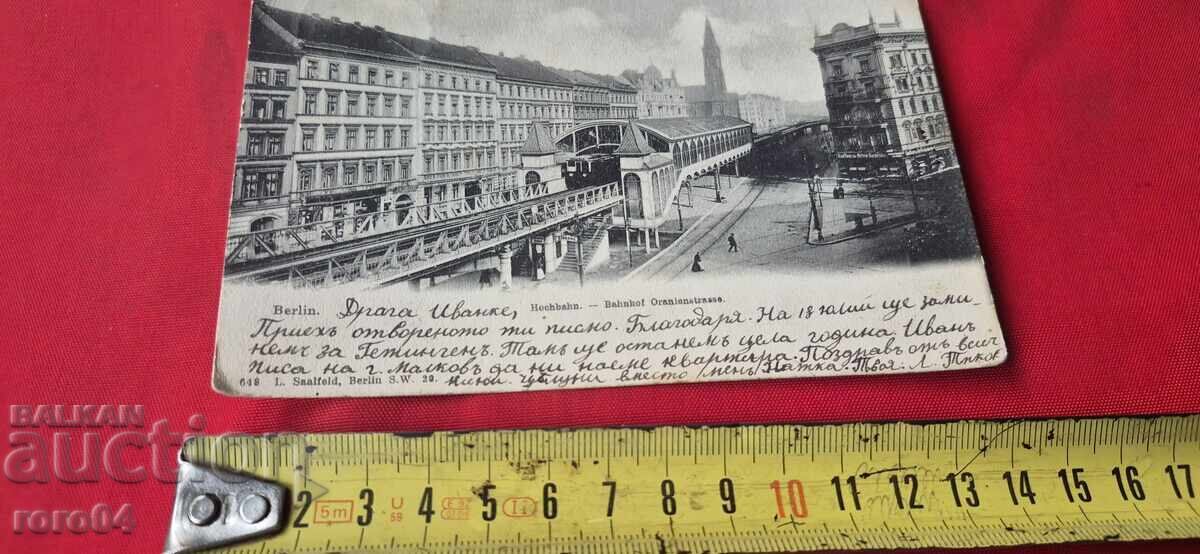 Berlin. Драга Иванке, Hochbahn. — Bahnhof Oranienstrasse.
Приехъ отвореното ти писмо. Благодаря. На 18 юлий ще зами-
немъ за Гетингенъ. Тамъ ще останемъ цела година. Иванъ
писа на г. Малковъ да ни наеме квартира. Поздравъ отъ всич
648 L. Saalfeld, Berlin S.W. 29. вместо менъ Натка. Твоя. Л.
BALKAN
auction
roro04
2 3 4 5 6 7 8 9 10 11 12 13 14 15 16 17
5m U 59